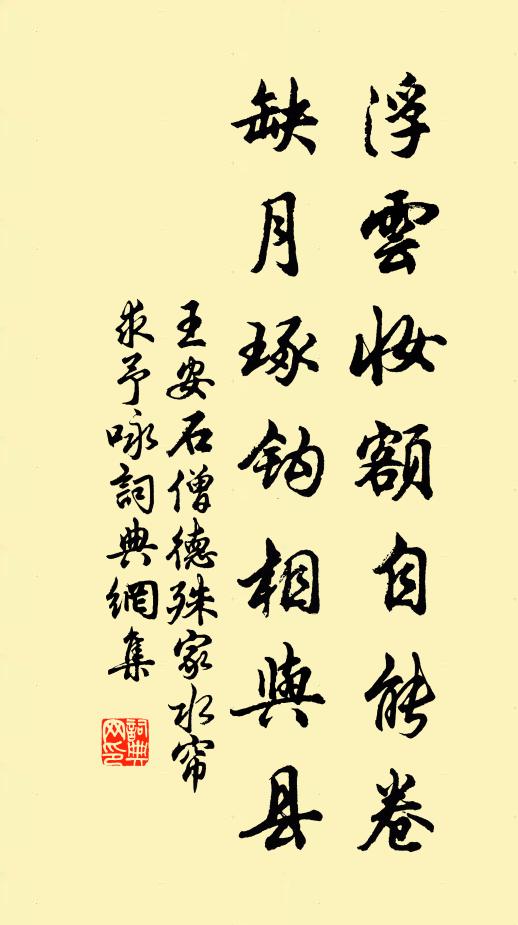 浮雲妝額自能卷
缺月琢鈎相與县
王安石僧德殊家水帘
求予咏詞典網集
詞典網印